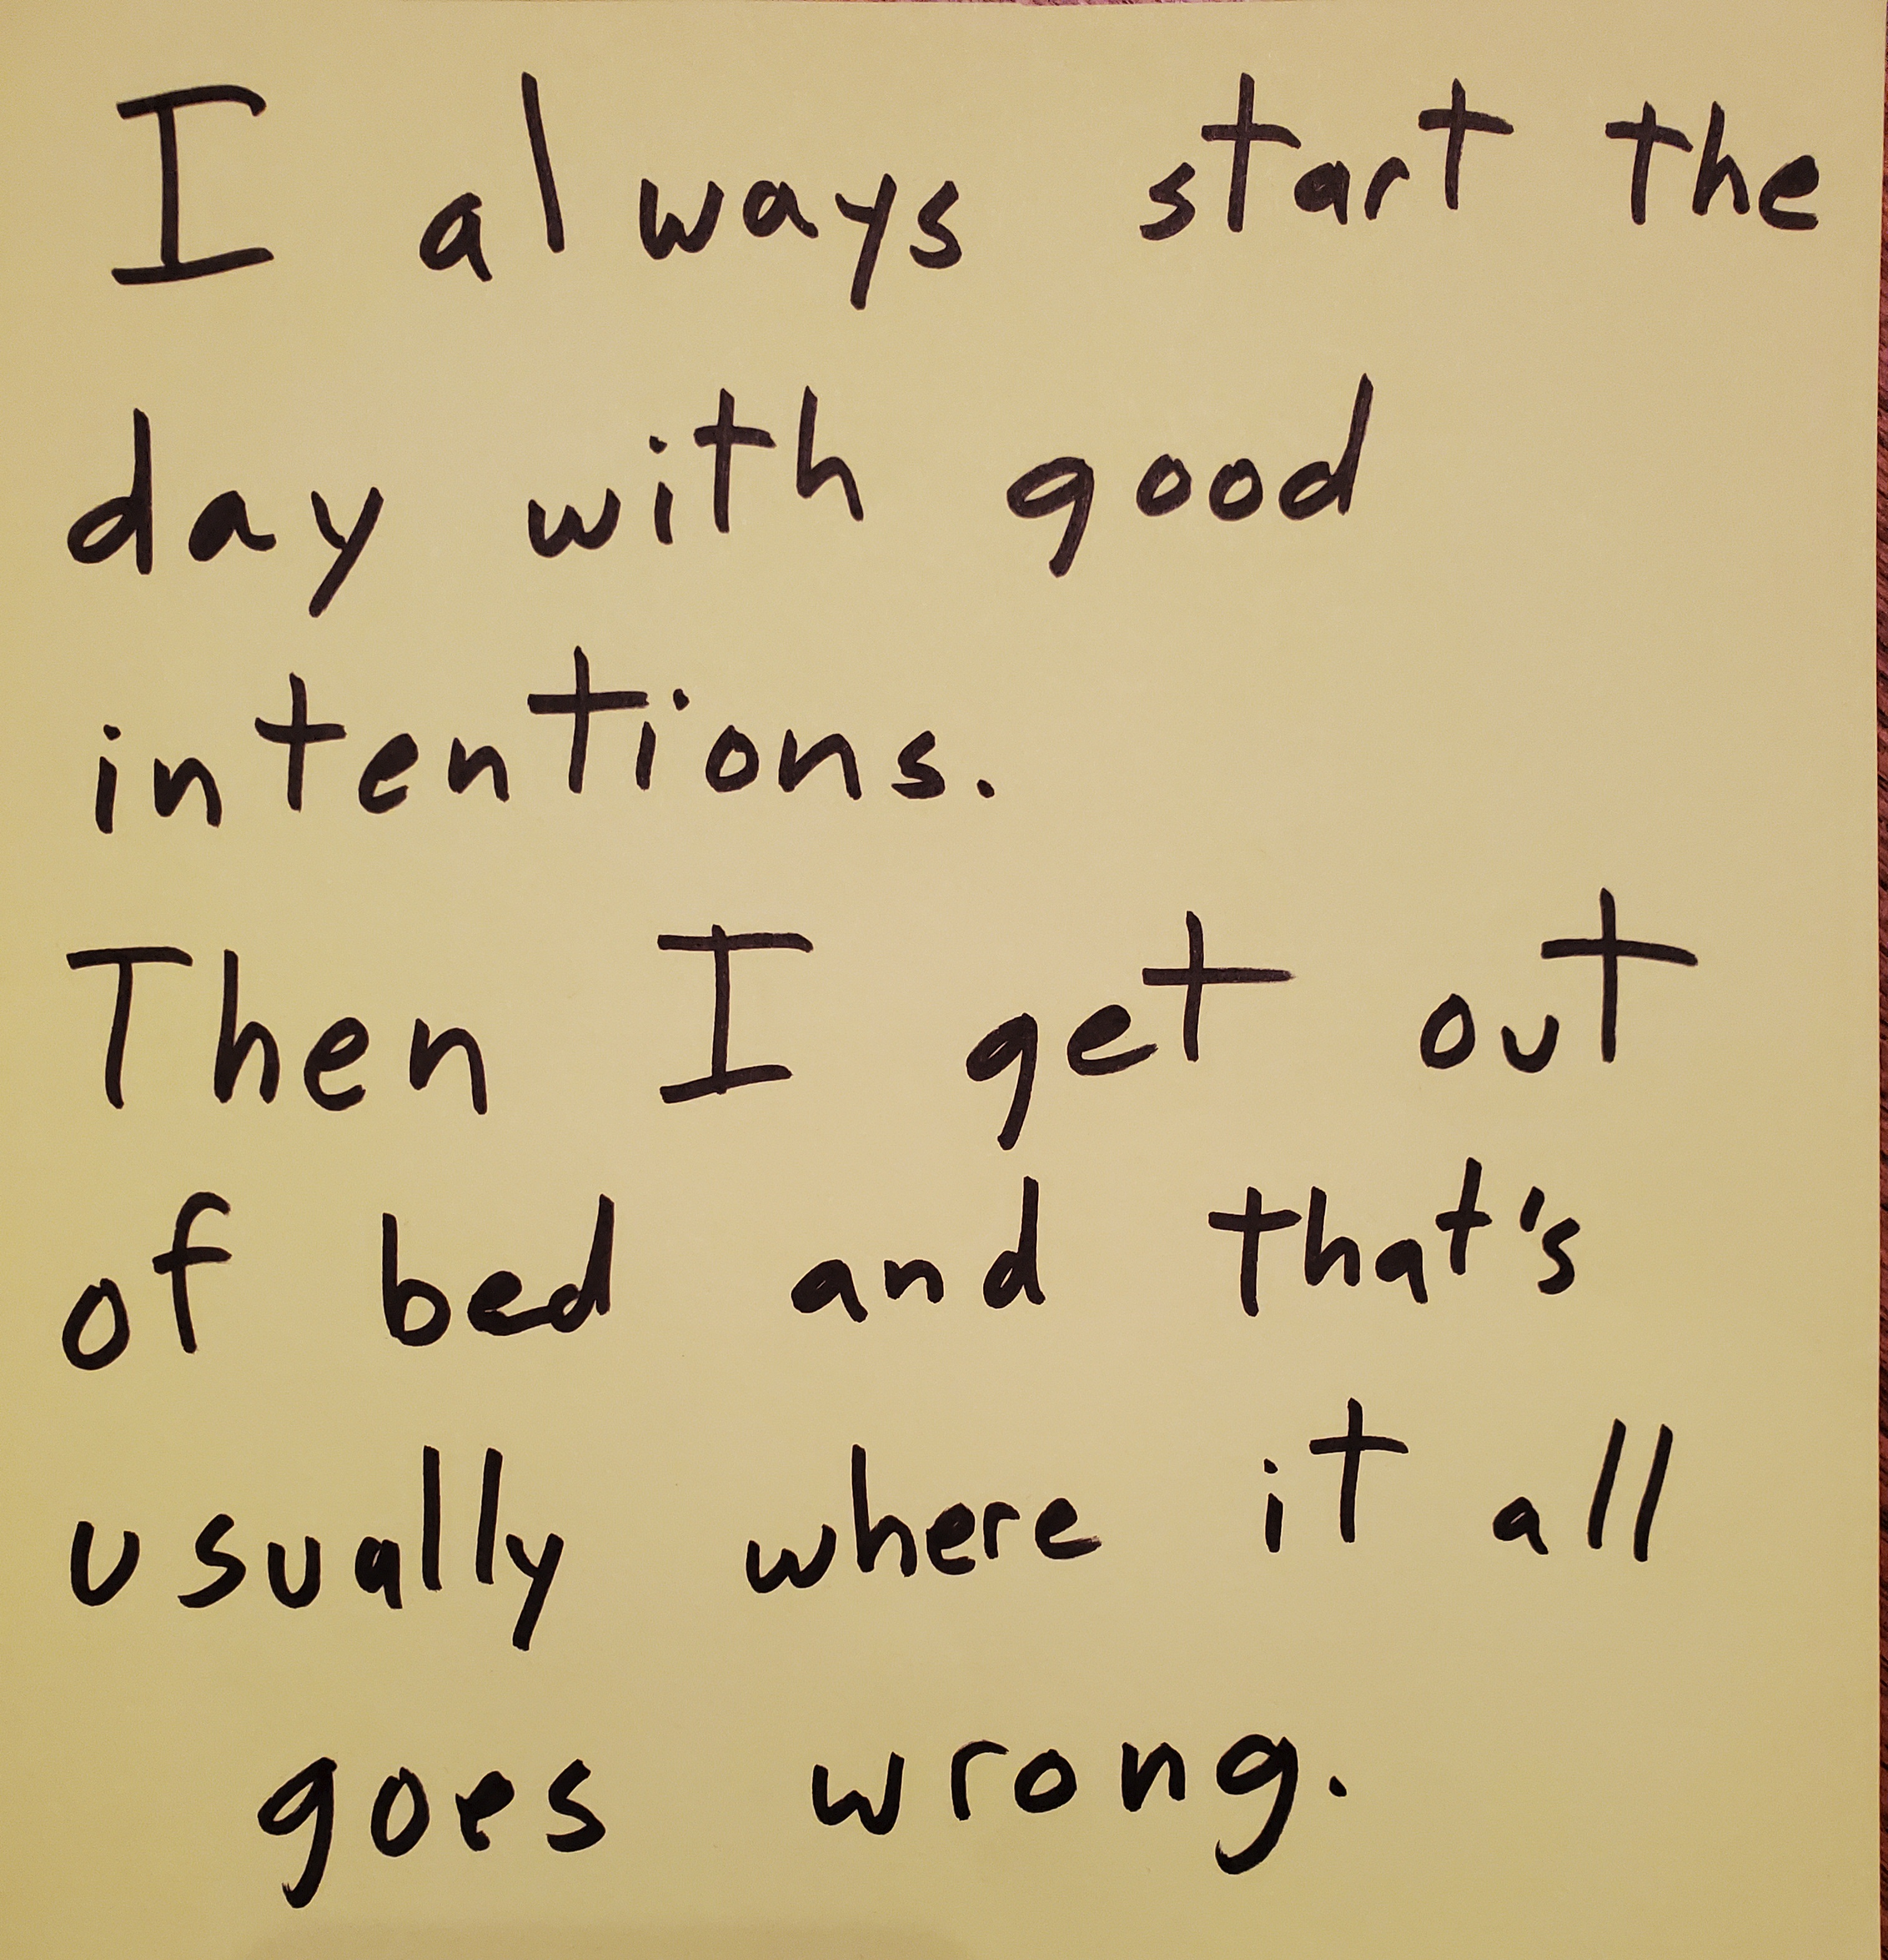 I always start the
day with good
intentions.
Then I get out
of bed and that's
usually where it all
goes wrong.